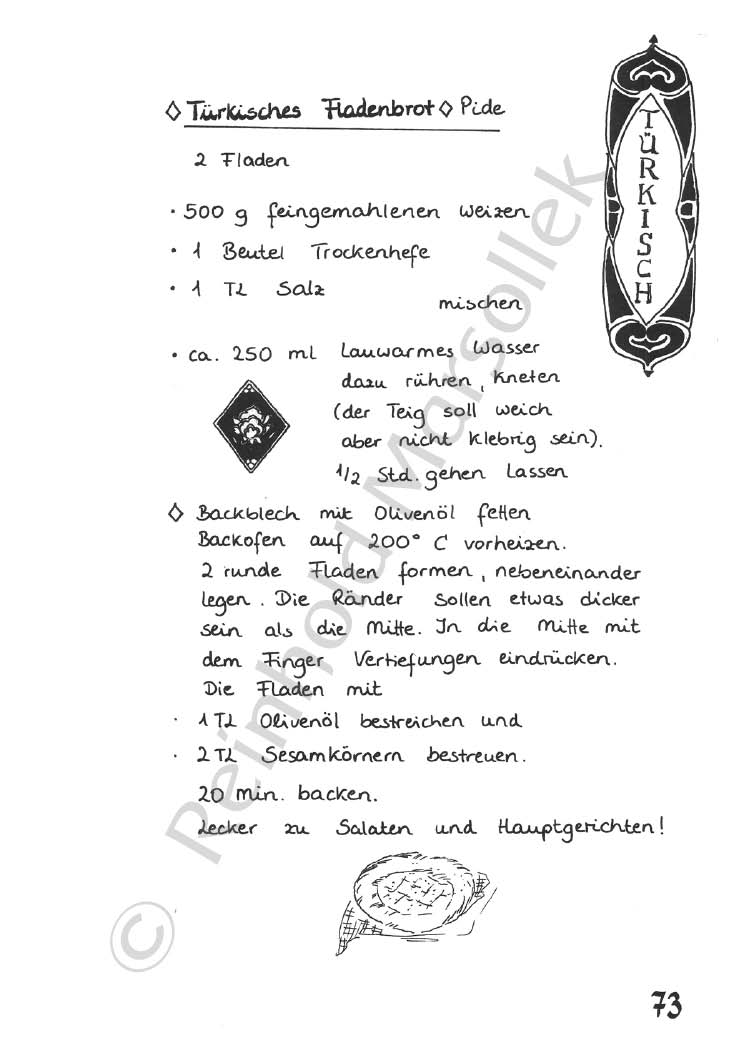 ◊ Türkisches Fladenbrot ◊ Pide
2 Fladen
· 500 g feingemahlenen Weizen
· 1 Beutel Trockenhefe
· 1 TL Salz
mischen
· ca. 250 ml Lauwarmes Wasser
dazu rühren, kneten
(der Teig soll weich
aber nicht klebrig sein).
1/2 Std. gehen lassen
◊ Backblech mit Olivenöl fetten
Backofen auf 200° C vorheizen.
2 runde Fladen formen, nebeneinander
legen. Die Ränder sollen etwas dicker
sein als die Mitte. In die Mitte mit
dem Finger Vertiefungen eindrücken.
Die Fladen mit
· 1 TL Olivenöl bestreichen und
· 2 TL Sesamkörnern bestreuen.
20 min. backen.
Lecker zu Salaten und Hauptgerichten!
TÜRKISCH
© Reinhold Marsollek
73